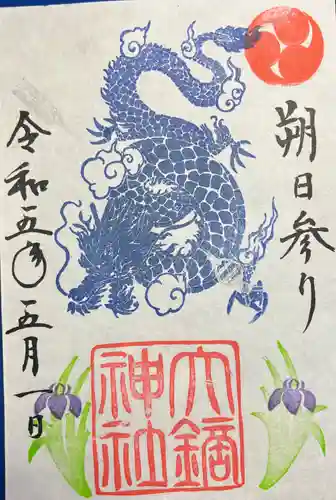 朔日参り
令和五年五月一日
大鏑
神社